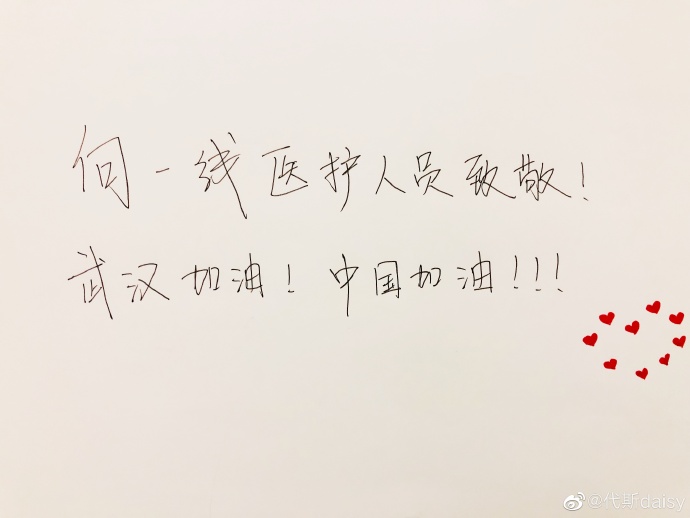 向一线医护人员致敬!
武汉加油!中国加油!!!
@代斯daisy